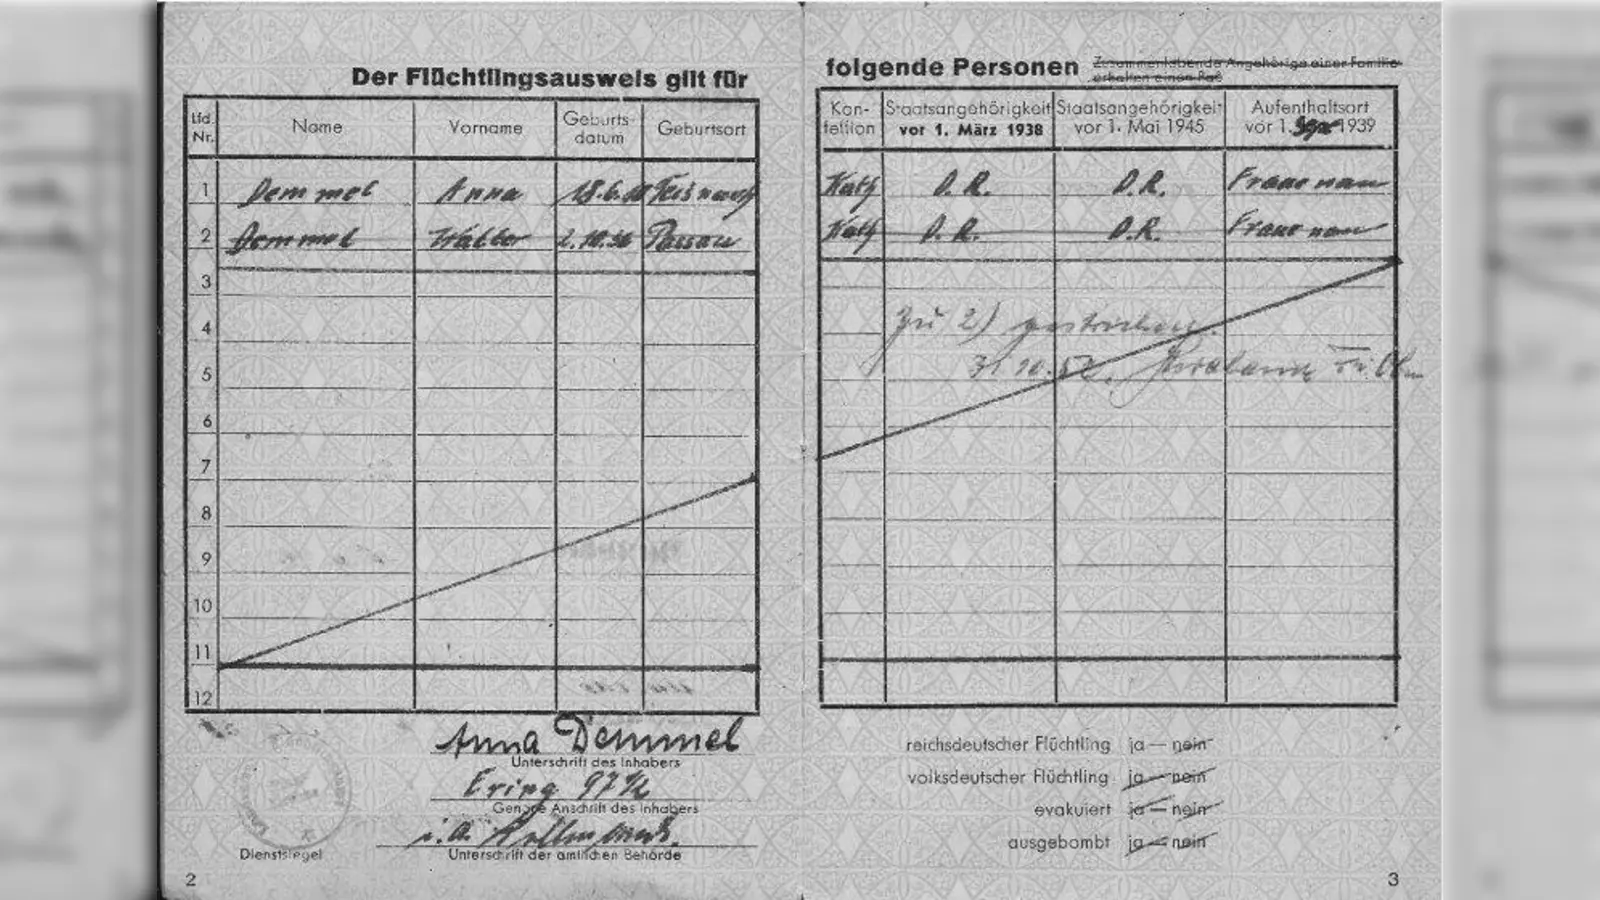 Der Flüchtlingsausweis gilt für
Lfd. Nr. Name Vorname Geburts-datum Geburtsort
1 Demmel Anna 18.6.
2 Demmel Walter 2.10.36 Passau
3
4
5
6
7
8
9
10
11
12
Anna Demmel
Unterschrift des Inhabers
Ering 97½
Genaue Anschrift des Inhabers
i.A.
Dienstsiegel Unterschrift der amtlichen Behörde
2
folgende Personen Zusammenlebende Angehörige einer Familie
erhalten einen Paß
Kon-fession Staatsangehörigkeit vor 1. März 1938 Staatsangehörigkeit vor 1. Mai 1945 Aufenthaltsort vor 1. Sep. 1939
Kath D.R. D.R. Frauenau
Kath D.R. D.R. Frauenau
Zu 2) gestrichen.
31.10.52.
reichsdeutscher Flüchtling ja — nein
volksdeutscher Flüchtling ja — nein
evakuiert ja — nein
ausgebombt ja — nein
3